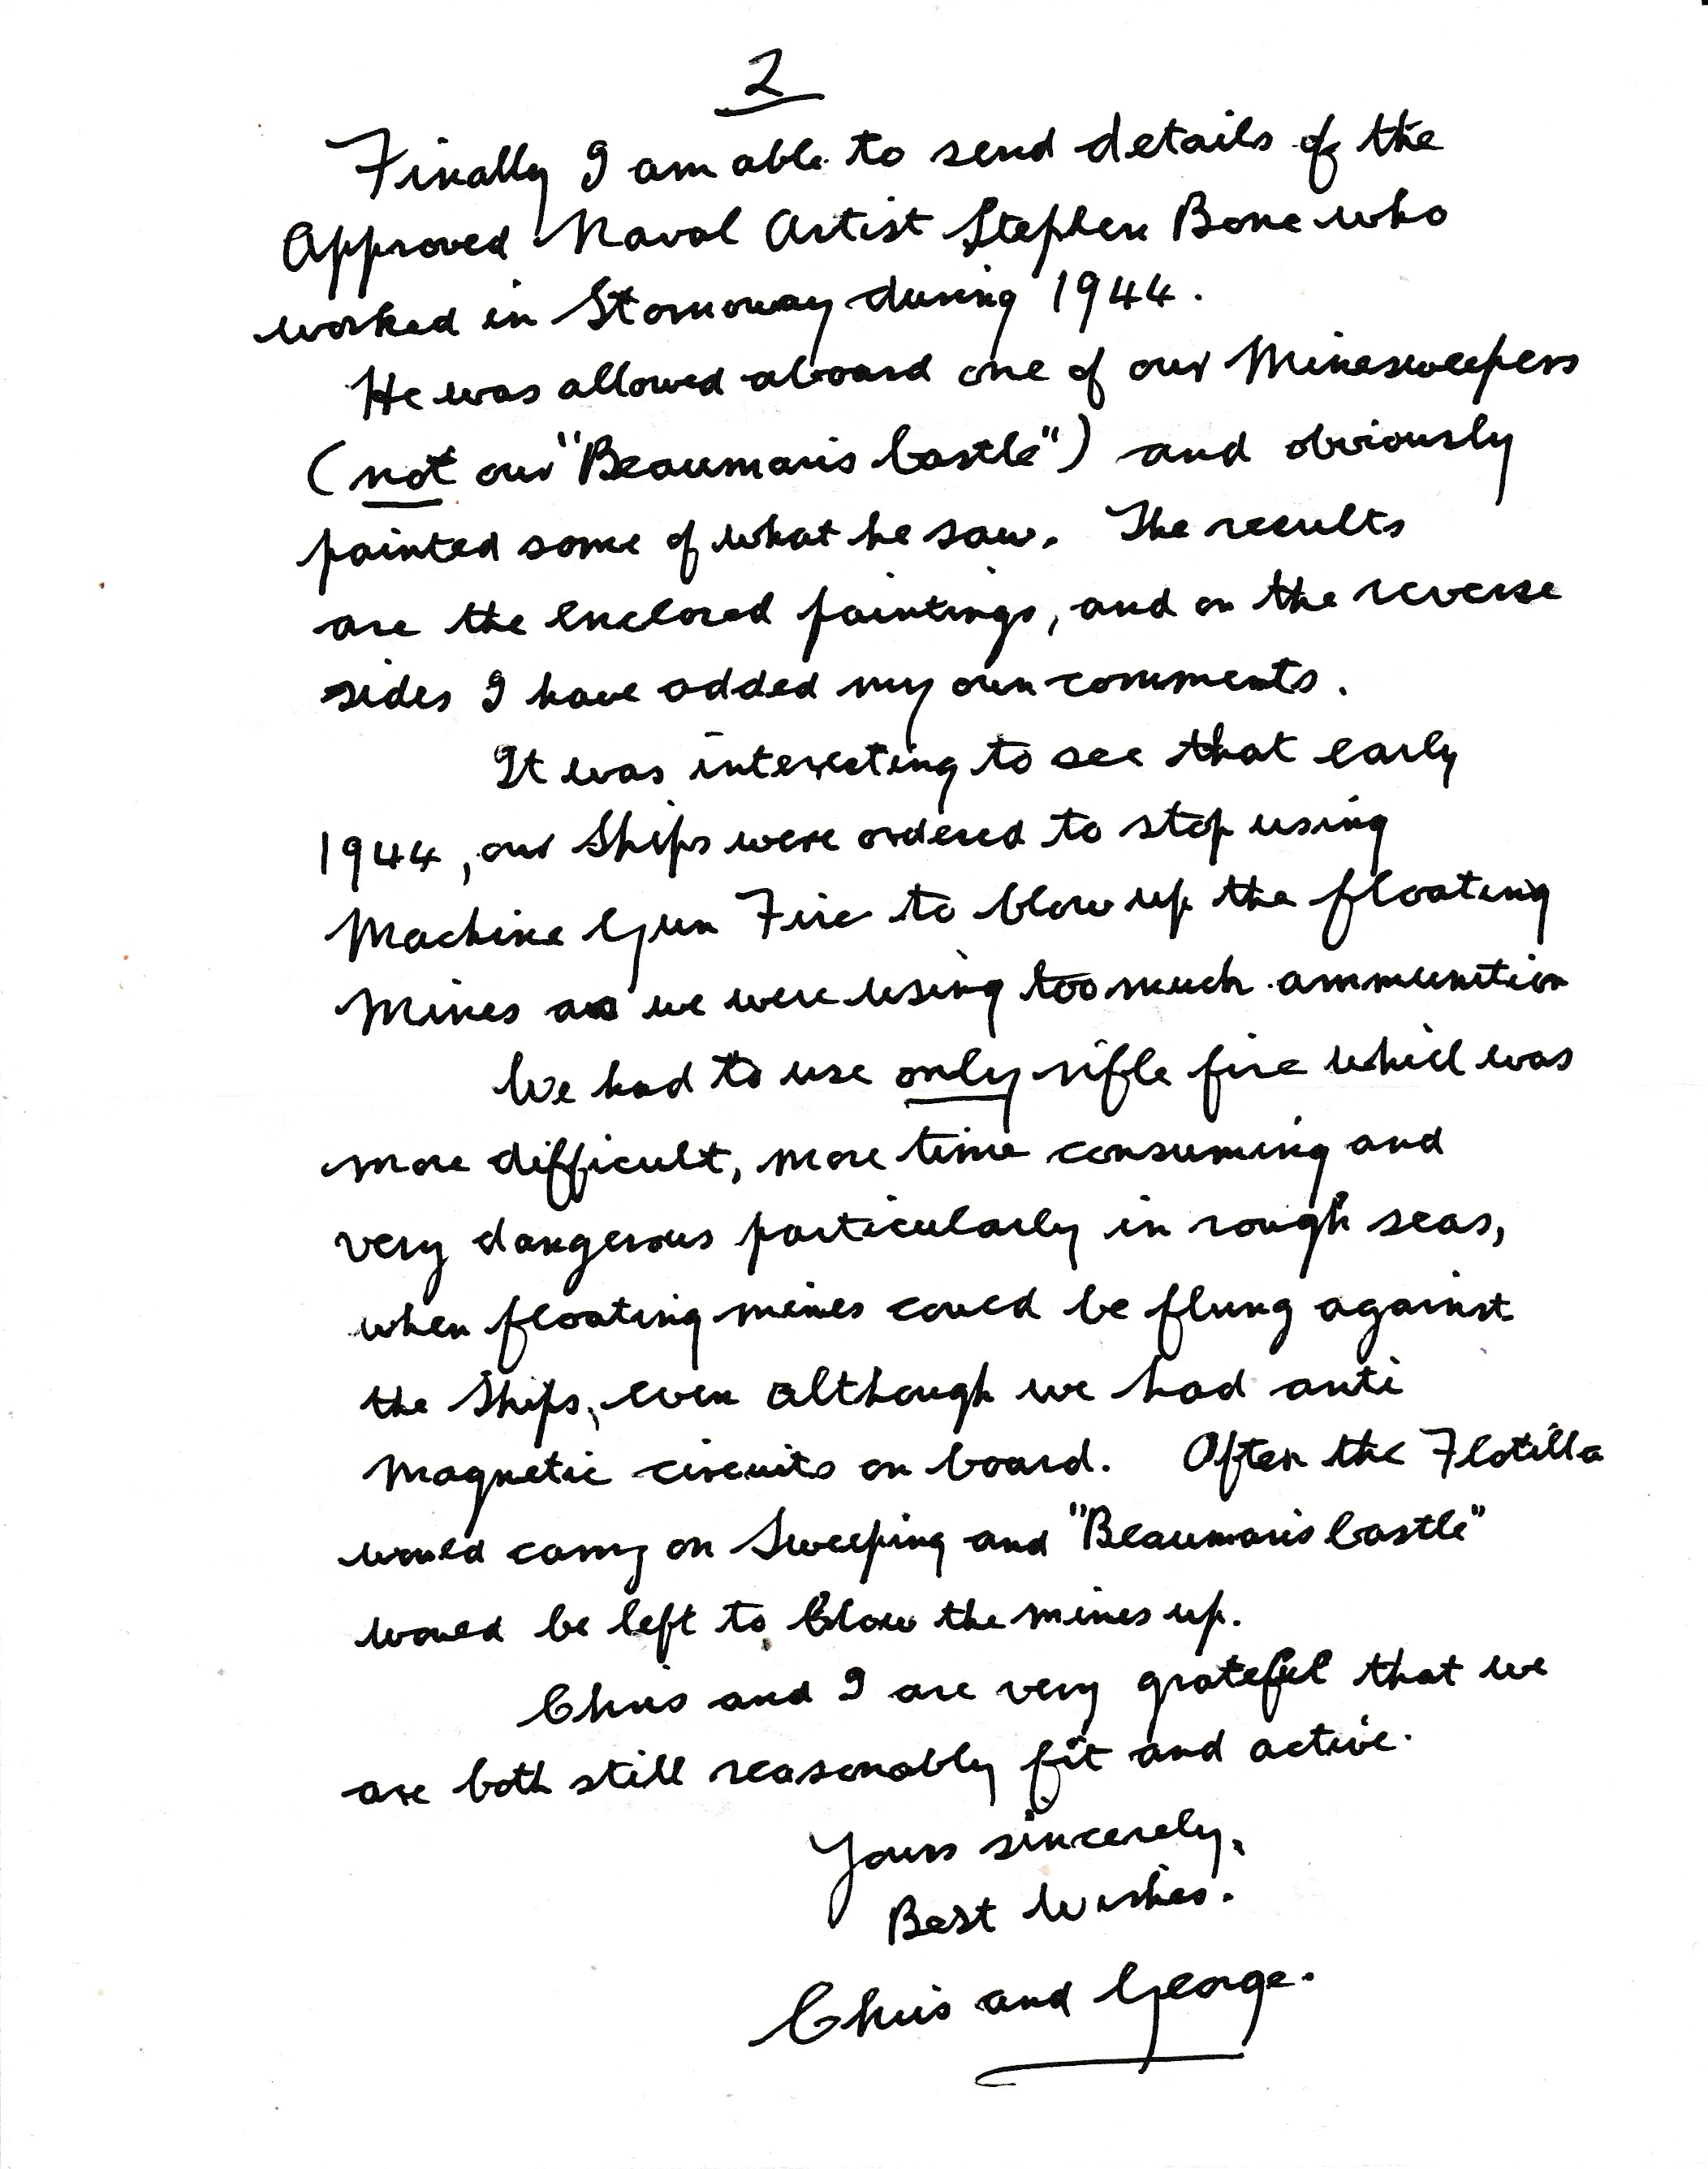 2
Finally I am able to send details of the
Approved Naval Artist Stephen Bone who
worked in Stornoway during 1944.
He was allowed aboard one of our Minesweepers
(not our "Beaumaris Castle") and obviously
painted some of what he saw. The results
are the enclosed paintings, and on the reverse
sides I have added my own comments.
It was interesting to see that early
1944, our Ships were ordered to stop using
Machine Gun Fire to blow up the floating
Mines as we were using too much ammunition
We had to use only rifle fire which was
more difficult, more time consuming and
very dangerous particularly in rough seas,
when floating mines could be flung against
the Ships, even although we had anti
magnetic circuits on board. Often the Flotilla
would carry on Sweeping and "Beaumaris Castle"
would be left to blow the mines up.
Chris and I are very grateful that we
are both still reasonably fit and active.
Yours sincerely,
Best Wishes.
Chris and George.